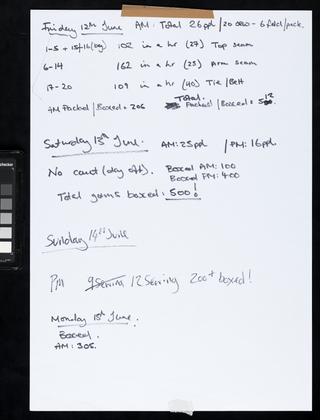 Friday 12th June AM: Total 26ppl / 20 sew - 6 fold/pack.
1-5 + 15/16 (big) 102 in a hr (27) Top seam
6-14 162 in a hr (25) Arm seam
17-20 109 in a hr (40) Tie/Belt
AM Packed/Boxed = 206 Total. Packed/Boxed = 512
Saturday 13th June. AM: 25ppl / PM: 16ppl
No count (day off). Boxed AM: 100
Boxed PM: 400
Total gowns boxed: 500!
Sunday 14th June
PM 12 Serving 200+ boxed!
Monday 15th June.
Boxed.
AM: 305.